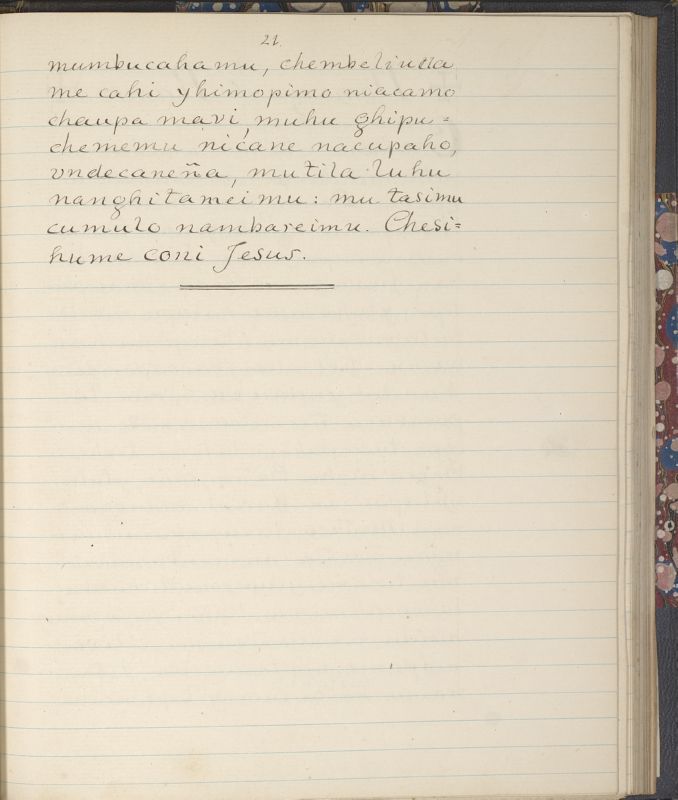 21.
mumbucahamu, chembeliucla
me cahi yhimopimo niacamo
chaupa mavi, muhu ghipu=
chememu nicane nacupaho,
vndecaneña, mutila luhu
nanghitameimu: mu tasimu
cumulo nambareimu. Chesi=
hume coni Jesus.